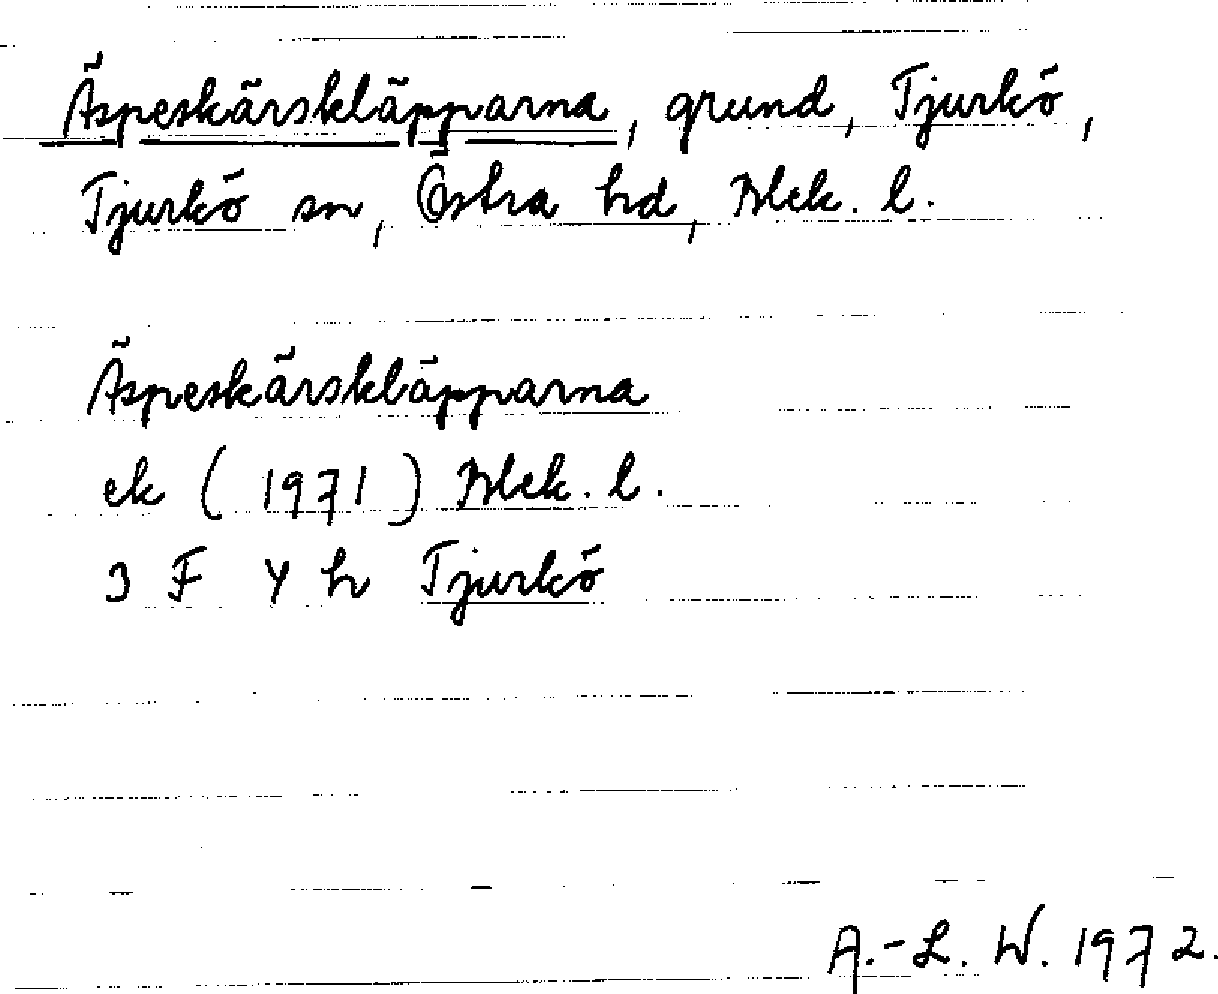 Äspeskärskläpparna, grund, Tjurkö,
Tjurkö sn, Östra hd, Blek. l.
Äspeskärskläpparna
ek (1971) Blek. l.
3 F 4 h Tjurkö
A.-L. W. 1972.